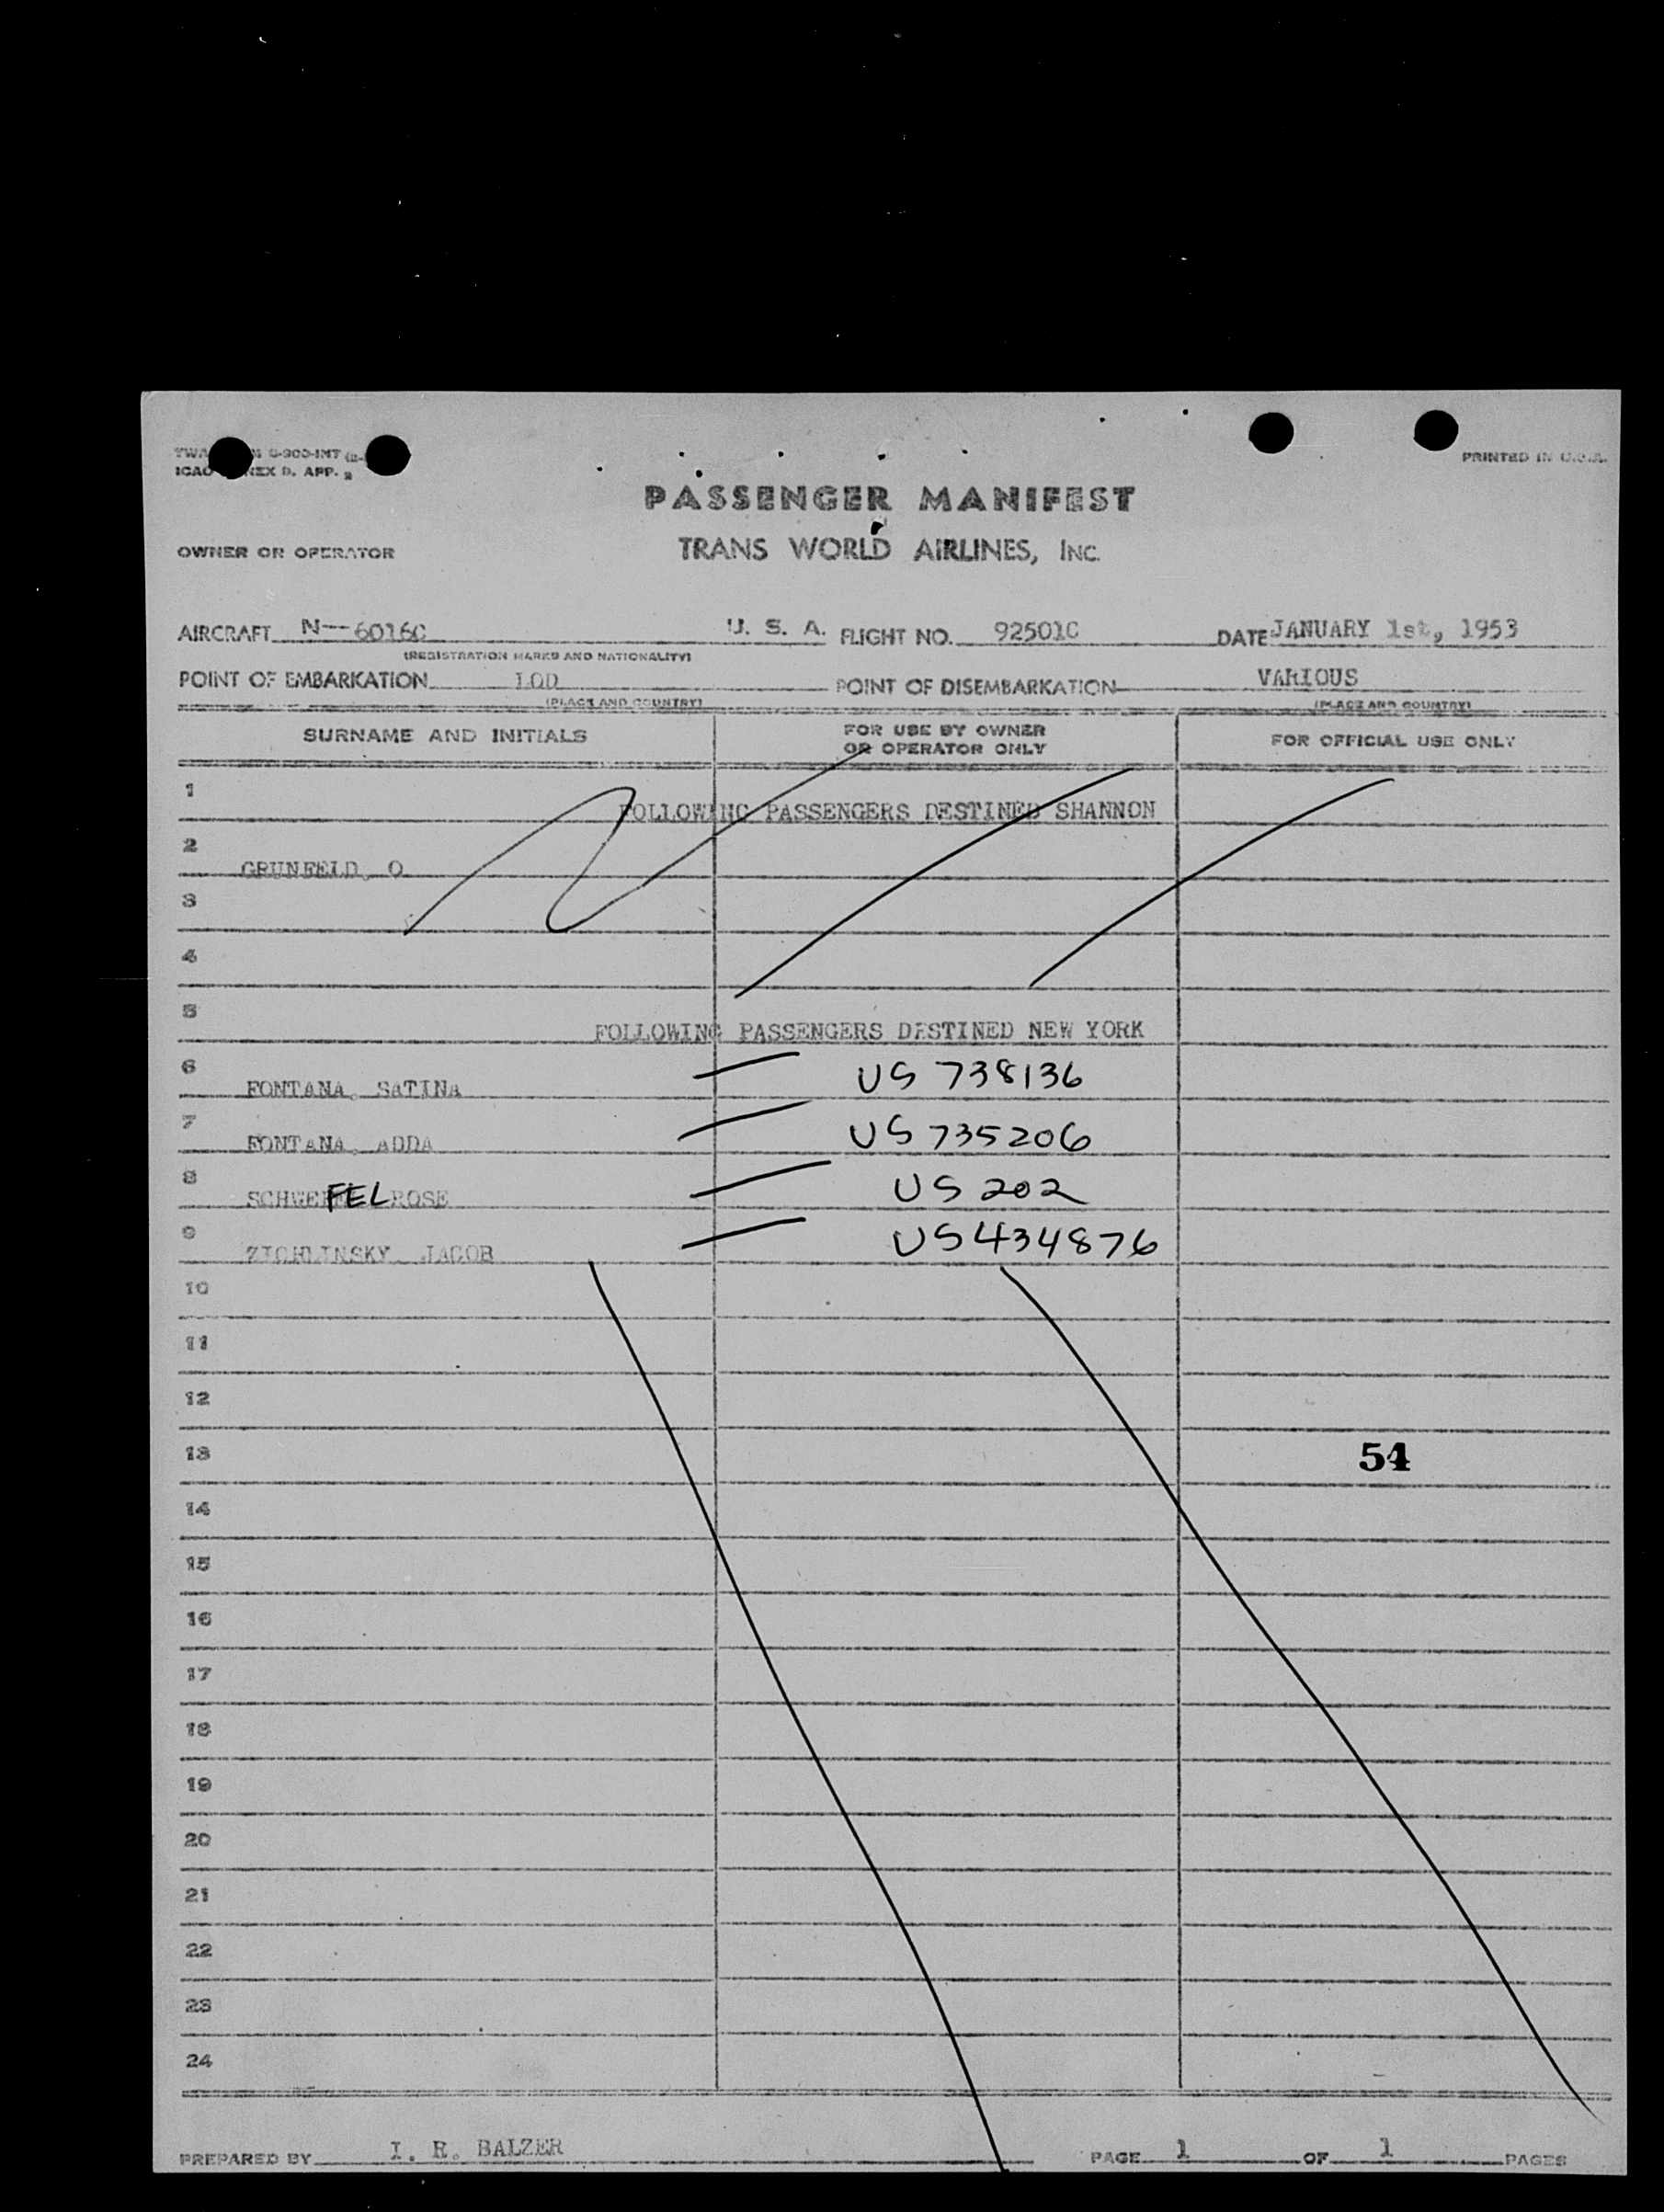 PRINTED IN U.S.A.
ICAO ANNEX D. APP. 2
PASSENGER MANIFEST
OWNER OR OPERATOR TRANS WORLD AIRLINES, INC.
AIRCRAFT N--6016C U. S. A. FLIGHT NO. 92501C DATE JANUARY 1st, 1953
(REGISTRATION MARKS AND NATIONALITY)
POINT OF EMBARKATION LOD POINT OF DISEMBARKATION VARIOUS
(PLACE AND COUNTRY) (PLACE AND COUNTRY)
SURNAME AND INITIALS FOR USE BY OWNER OR OPERATOR ONLY FOR OFFICIAL USE ONLY
1 FOLLOWING PASSENGERS DESTINED SHANNON
2 GRUNFELD, O
3
4
5 FOLLOWING PASSENGERS DESTINED NEW YORK
6 FONTANA, SATINA US 738136
7 FONTANA, ADDA US 735206
8 SCHWEFFEL ROSE US 202
9 ZICHLINSKY JACOB US 434876
10
11
12
13 54
14
15
16
17
18
19
20
21
22
23
24
PREPARED BY I. R. BALZER PAGE 1 OF 1 PAGES